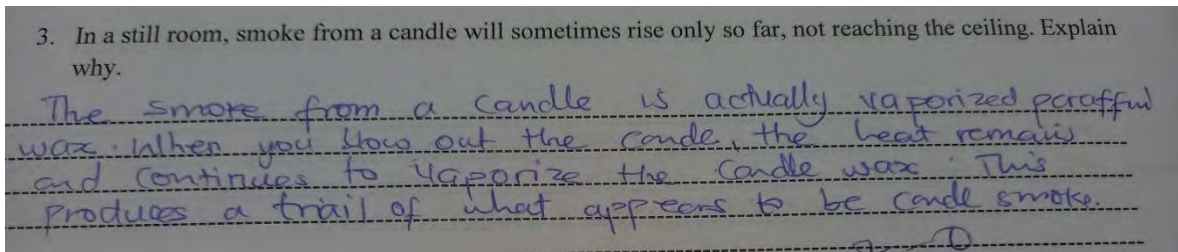 3. In a still room, smoke from a candle will sometimes rise only so far, not reaching the ceiling. Explain
why.
The smoke from a candle is actually vaporized paraffin
wax. When you blow out the cande, the heat remains
and continues to vaporize the candle wax. This
produces a trail of what appears to be candle smoke.